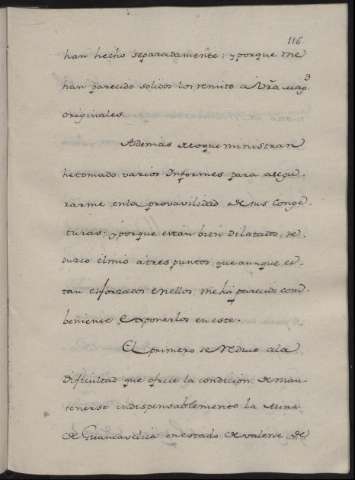 116
han hecho separadamente; y porque me
han parecido solidos los remito a Vrã. Magᵈ
originales.
Además de loque ministran
he tomado varios Informes para asegu-
rarme enla provavilidad de sus Conge-
turas: y porque están bien dilatados, re-
dusco el mio a tres puntos, que aunque es-
tan esforzados en ellos, me há parecido com-
beniente exponerlos en este.
El primero se reduce ala
dificultad que ofrece la condicion de man-
tenerse indispensablemente la mina
de Guancavelica en estado de valerse de